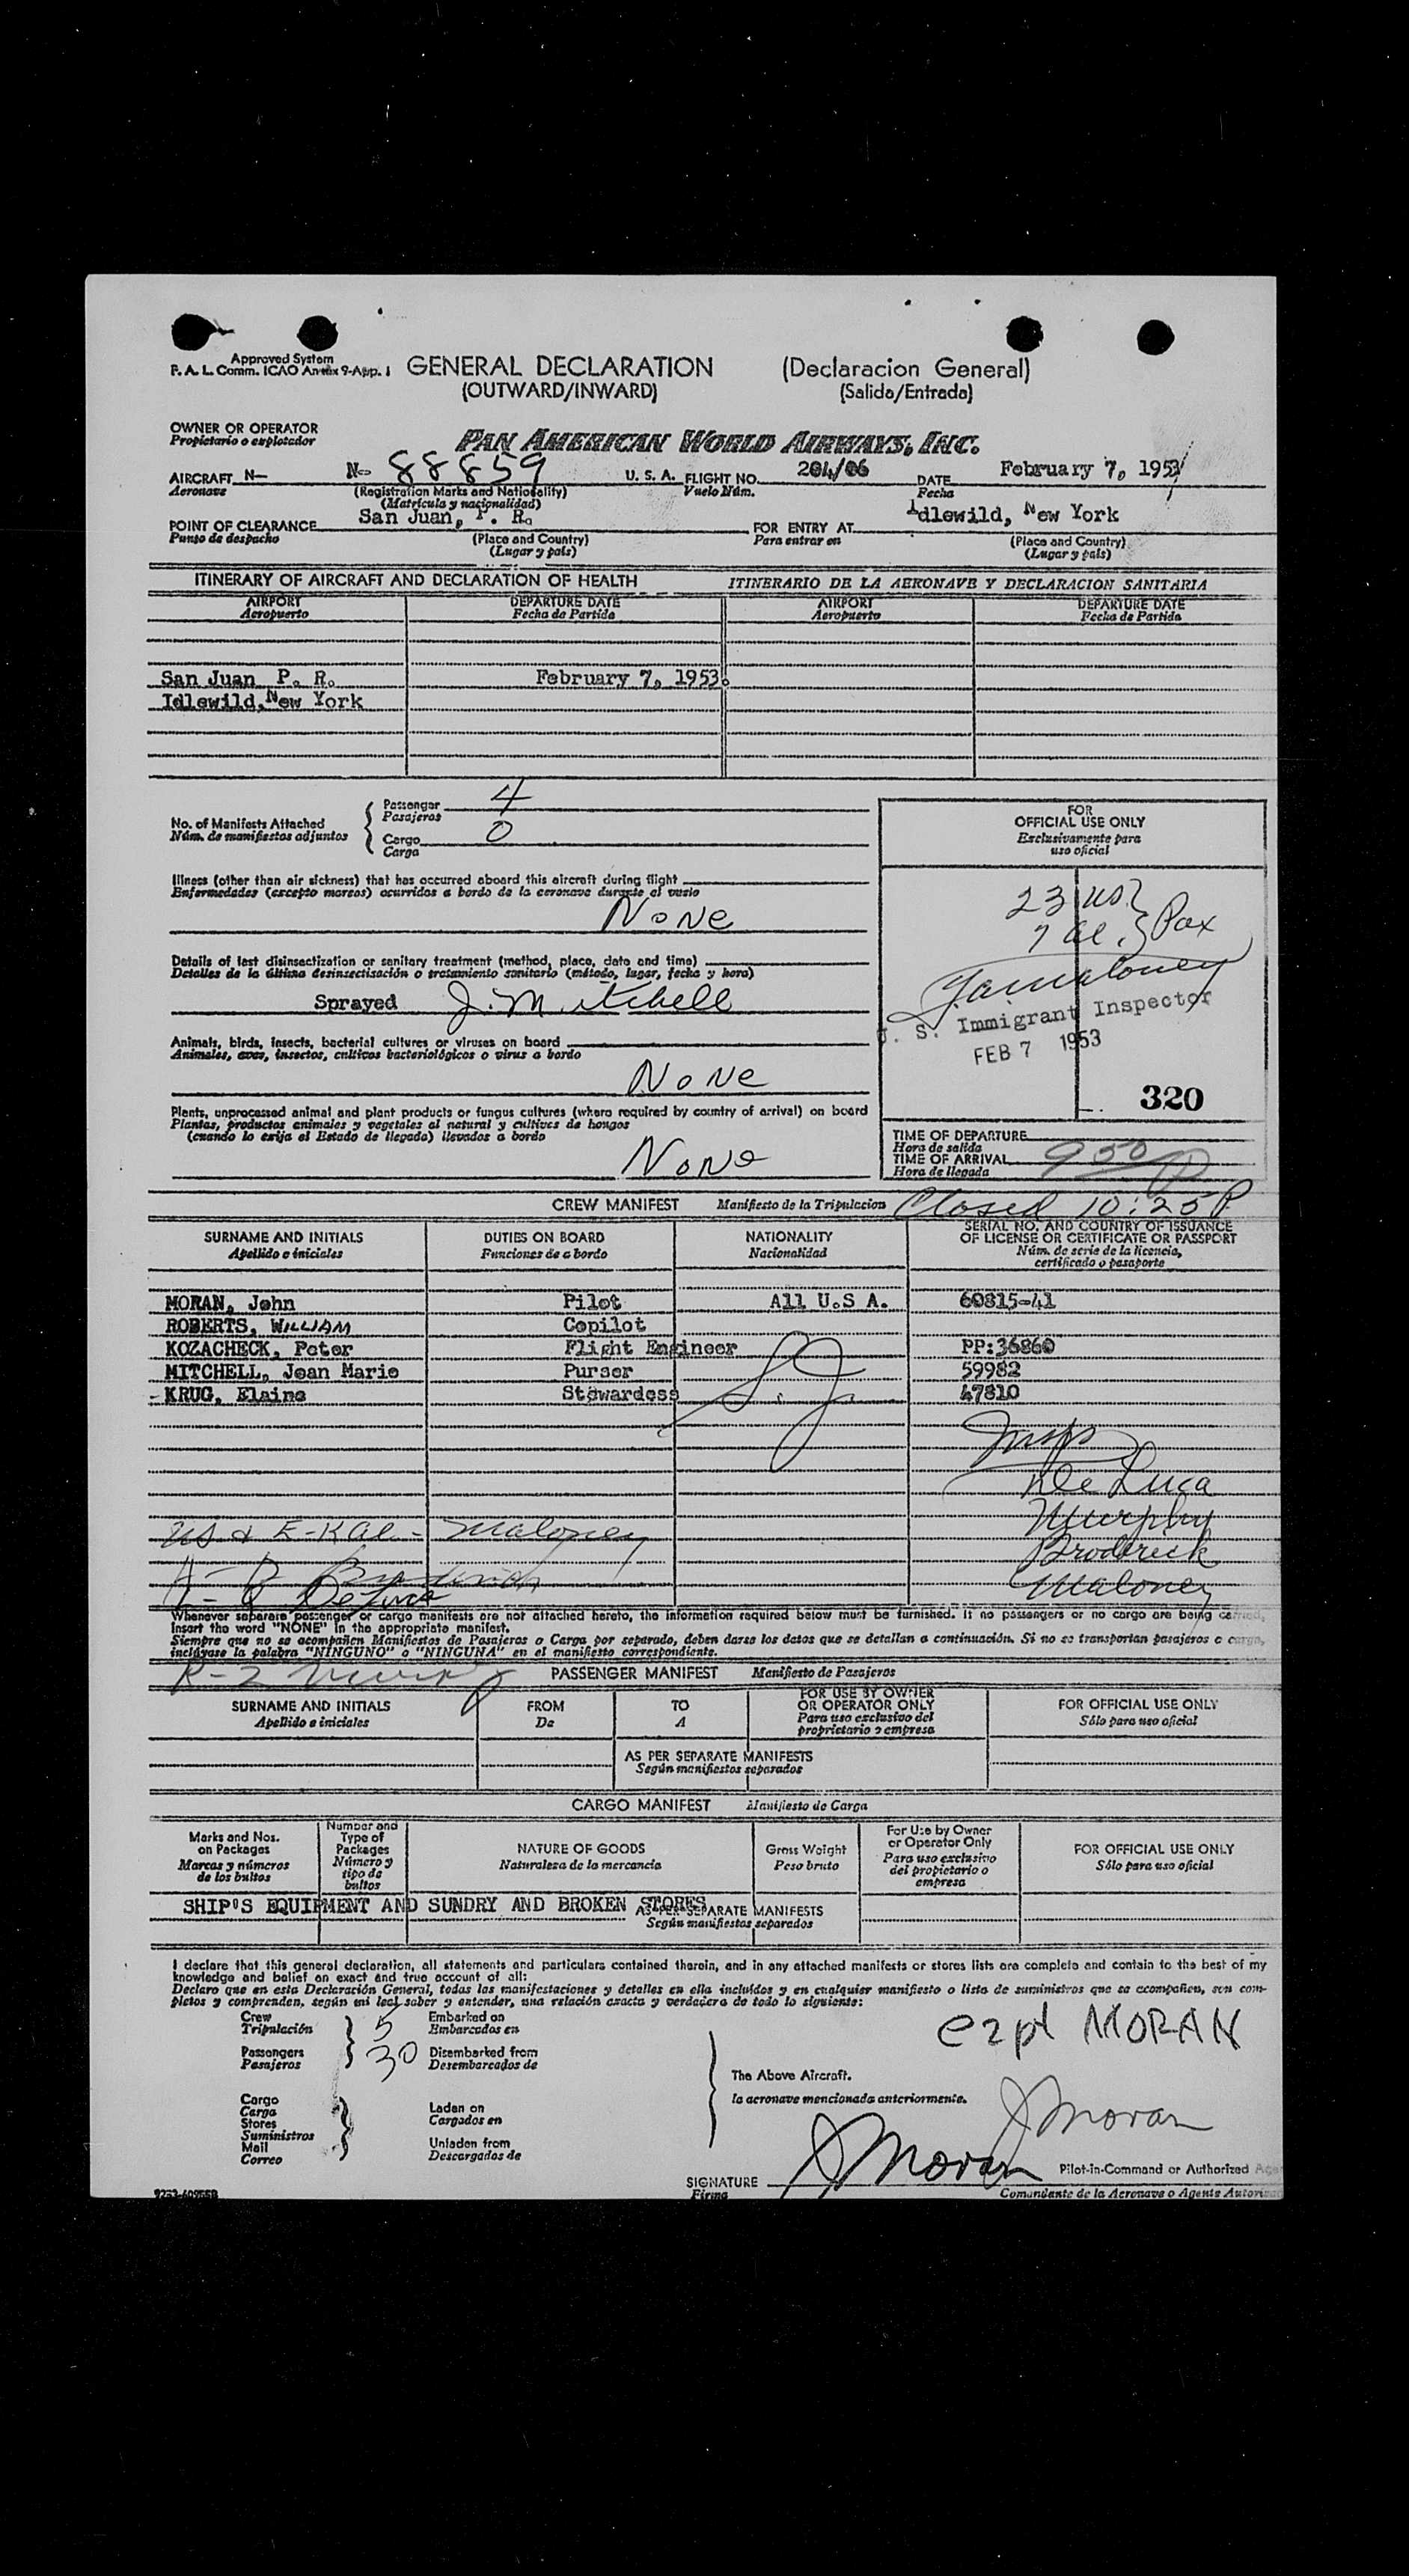 Approved System
F. A. L. Comm. ICAO Annex 9-App. 1
GENERAL DECLARATION (Declaracion General)
(OUTWARD/INWARD) (Salida/Entrada)
OWNER OR OPERATOR
Propietario o explotador
PAN AMERICAN WORLD AIRWAYS, INC.
AIRCRAFT N- N- 88859 U. S. A. FLIGHT NO. 204/06 DATE February 7, 1953
Aeronave (Registration Marks and Nationality) Vuelo Núm. Fecha
(Matrícula y nacionalidad)
POINT OF CLEARANCE San Juan, P. R. FOR ENTRY AT Idlewild, New York
Punto de despacho (Place and Country) Para entrar en (Place and Country)
(Lugar y país) (Lugar y país)
ITINERARY OF AIRCRAFT AND DECLARATION OF HEALTH ITINERARIO DE LA AERONAVE Y DECLARACION SANITARIA
AIRPORT DEPARTURE DATE AIRPORT DEPARTURE DATE
Aeropuerto Fecha de Partida Aeropuerto Fecha de Partida
San Juan P. R. February 7, 1953.
Idlewild, New York
No. of Manifests Attached
Núm. de manifiestos adjuntos
Passenger 4
Pasajeros
Cargo 0
Carga
FOR
OFFICIAL USE ONLY
Exclusivamente para
uso oficial
Illness (other than air sickness) that has occurred aboard this aircraft during flight
Enfermedades (excepto mareos) ocurridas a bordo de la aeronave durante el vuelo
None
23 US
7 al. } Pax
Details of last disinsectization or sanitary treatment (method, place, date and time)
Detalles de la última desinsectisación o tratamiento sanitario (método, lugar, fecha y hora)
Sprayed J. Mitchell
Maloney
U. S. Immigrant Inspector
FEB 7 1953
Animals, birds, insects, bacterial cultures or viruses on board
Animales, aves, insectos, cultivos bacteriológicos o virus a bordo
None
320
Plants, unprocessed animal and plant products or fungus cultures (where required by country of arrival) on board
Plantas, productos animales y vegetales al natural y cultivos de hongos
(cuando lo exija el Estado de llegada) llevados a bordo
None
TIME OF DEPARTURE
Hora de salida
TIME OF ARRIVAL 9 50 P
Hora de llegada
CREW MANIFEST Manifiesto de la Tripulacion Closed 10:25 P
SURNAME AND INITIALS DUTIES ON BOARD NATIONALITY SERIAL NO. AND COUNTRY OF ISSUANCE
OF LICENSE OR CERTIFICATE OR PASSPORT
Apellido e iniciales Funciones de a bordo Nacionalidad Núm. de serie de la licencia,
certificado o pasaporte
MORAN, John Pilot All U.S A. 60815-41
ROBERTS, WILLIAM Copilot
KOZACHECK, Peter Flight Engineer PP:36860
MITCHELL, Jean Marie Purser 59982
- KRUG, Elaine Stewardess 47810
Insps
De Luca
Murphy
US & E-K al - Maloney
Broderick
Maloney
Whenever separate passenger or cargo manifests are not attached hereto, the information required below must be furnished. If no passengers or no cargo are being carried,
insert the word "NONE" in the appropriate manifest.
Siempre que no se acompañen Manifiestos de Pasajeros o Carga por separado, deben darse los datos que se detallan a continuación. Si no se transportan pasajeros o carga,
inclúyase la palabra "NINGUNO" o "NINGUNA" en el manifiesto correspondiente.
R-2
PASSENGER MANIFEST Manifiesto de Pasajeros
SURNAME AND INITIALS FROM TO FOR USE BY OWNER
OR OPERATOR ONLY FOR OFFICIAL USE ONLY
Apellido e iniciales De A Para uso exclusivo del
propietario o empresa Sólo para uso oficial
AS PER SEPARATE MANIFESTS
Según manifiestos separados
CARGO MANIFEST Manifiesto de Carga
Marks and Nos.
on Packages
Marcas y números
de los bultos
Number and
Type of
Packages
Número y
tipo de
bultos
NATURE OF GOODS
Naturaleza de la mercancía
Gross Weight
Peso bruto
For Use by Owner
or Operator Only
Para uso exclusivo
del propietario o
empresa
FOR OFFICIAL USE ONLY
Sólo para uso oficial
SHIP'S EQUIPMENT AND SUNDRY AND BROKEN STORES
AS PER SEPARATE MANIFESTS
Según manifiestos separados
I declare that this general declaration, all statements and particulars contained therein, and in any attached manifests or stores lists are complete and contain to the best of my
knowledge and belief an exact and true account of all:
Declaro que en esta Declaración General, todas las manifestaciones y detalles en ella incluídos y en cualquier manifiesto o lista de suministros que se acompañen, son com-
pletos y comprenden, según mi leal saber y entender, una relación exacta y verdadera de todo lo siguiente:
Crew 5 Embarked on
Tripulación Embarcados en
Passengers 30 Disembarked from
Pasajeros Desembarcados de
Cargo
Carga
Stores
Suministros
Mail
Correo
Laden on
Cargados en
Unladen from
Descargados de
The Above Aircraft.
la aeronave mencionada anteriormente.
Capt MORAN
J Moran
SIGNATURE J Moran Pilot-in-Command or Authorized
Firma Comandante de la Aeronave o Agente